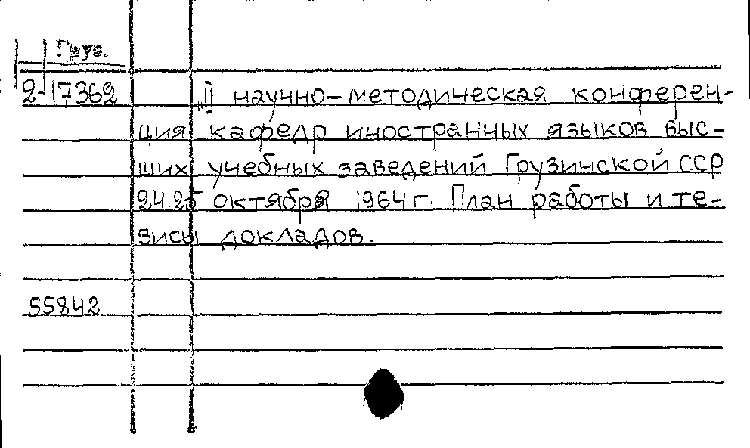 Груз.
2-17362 II научно-методическая конферен-
ция кафедр иностранных языков выс-
ших учебных заведений Грузинской ССР
24.25 октября 1964 г. План работы и те-
зисы докладов.
55842